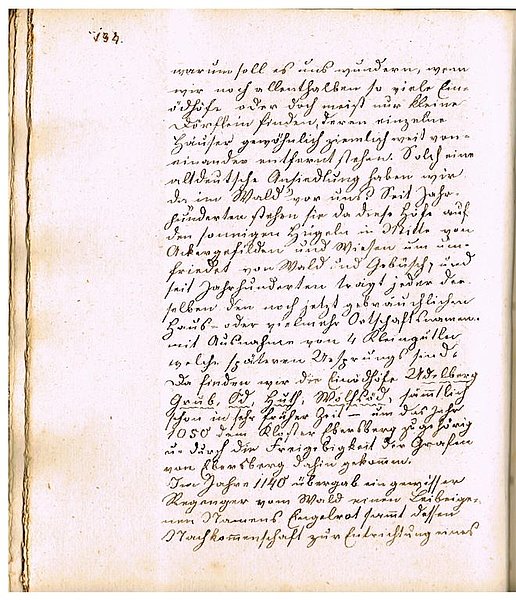 194.
warum soll es uns wundern, wenn
wir noch allenthalben so viele Ein-
ödhöfe oder doch meist nur kleine
Dörflein finden, deren einzelne
Häuser gewöhnlich ziemlich weit von-
einander entfernt stehen. Solch eine
altdeutsche Ansiedlung haben wir
da im Wald vor uns! Seit Jahr-
hunderten stehen sie da diese Höfe auf
den sonnigen Hügeln in Mitte von
Ackergefilden und Wiesen um um-
friedet von Wald und Gebüsch, und
seit Jahrhunderten trägt jeder der-
selben den noch jetzt gebräuchlichen
Haus- oder vielmehr Ortschaftsnamen.
mit Ausnahme von 4 Kleingütln
welche späteren Ursprungs sind.
Da finden wir die Einödhöfe Adelberg
Grub, Öd, Huth, Wolfsöd, sämmtlich
schon in sehr früher Zeit – um das Jahr
1050 dem Kloster Ebersberg zugehörig
u. durch die Freigebigkeit der Grafen
von Ebersberg dahin gekommen.
Im Jahre 1140 übergab ein gewisser
Regenger vom Wald einen Leibeige-
nen Namens Engelrot sammt dessen
Nachkommenschaft zur Entrichtung eines